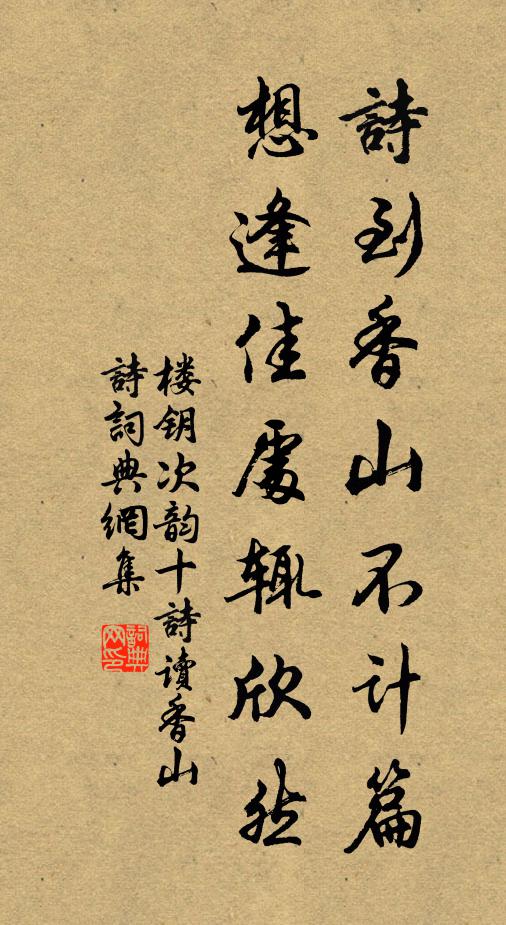 詩到香山不计篇
想逢佳處辄欣然
楼钥次韵十詩读香山
詩詞典網集
詞典网印